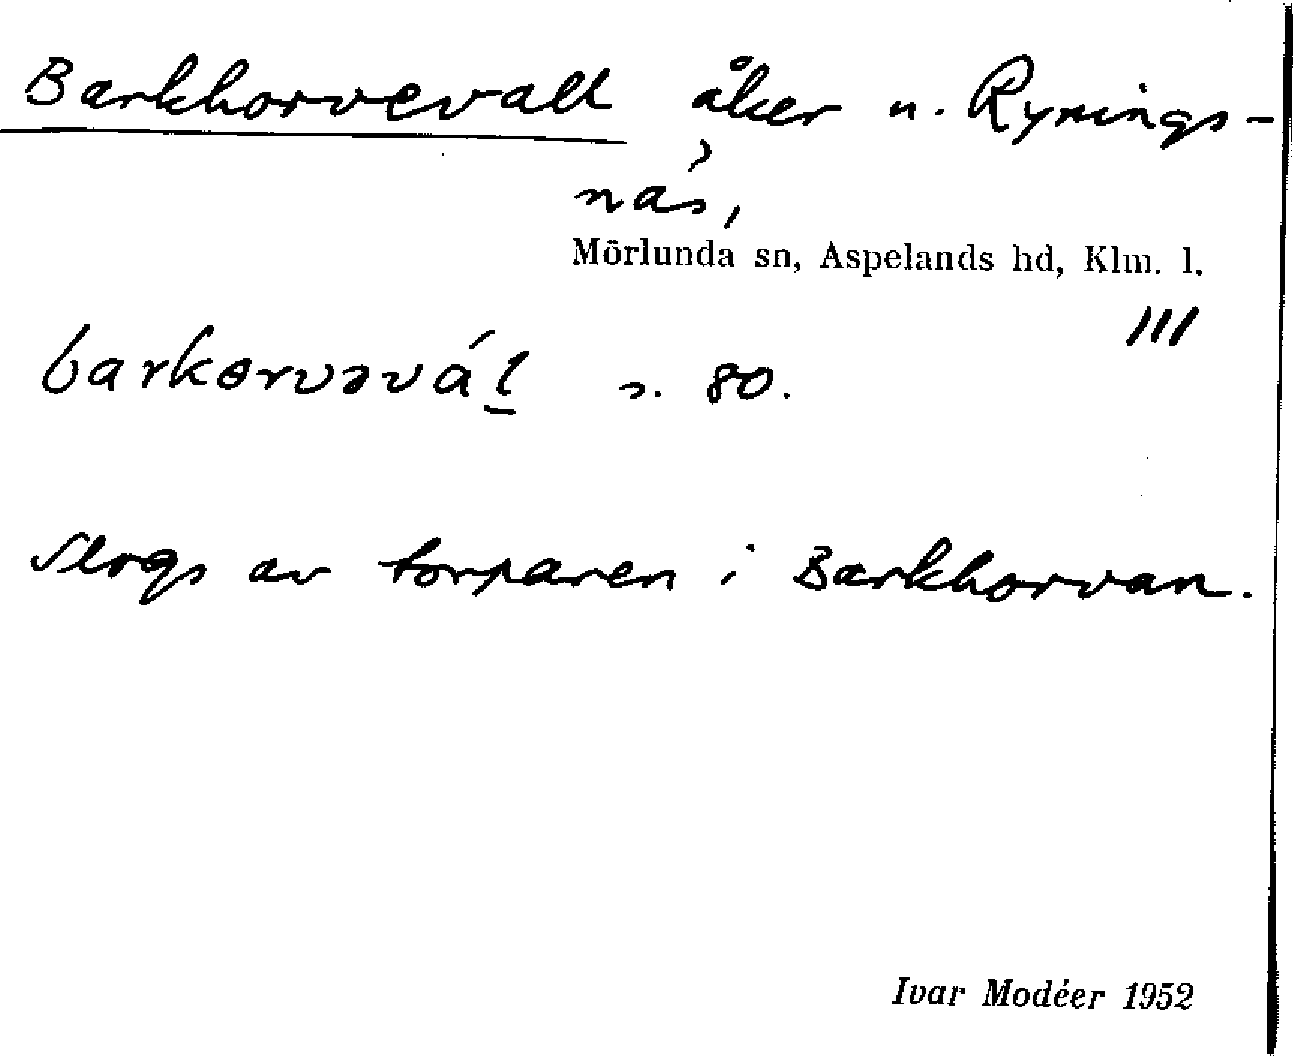 Barkhorvevall åker u. Rynings-
näs,
Mörlunda sn, Aspelands hd, Klm. l.
III
barkɵrvəvál s. 80.
Slogs av torparen i Barkhorvan.
Ivar Modéer 1952